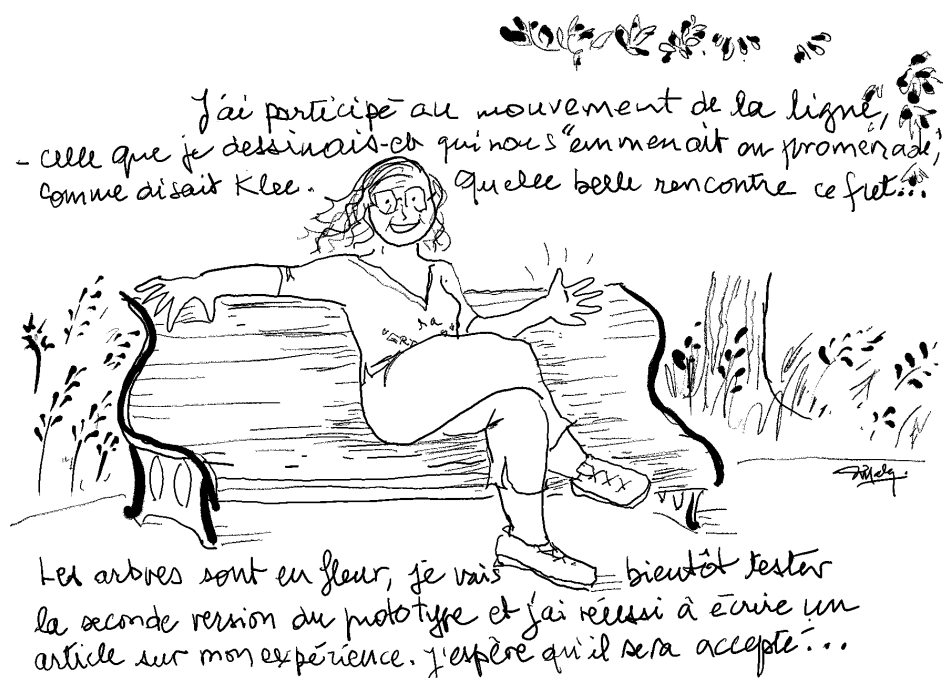 J'ai participé au mouvement de la ligne,
- celle que je dessinais - et qui nous "emmenait en promenade,"
comme disait Klee. Quelle belle rencontre ce fut...
Les arbres sont en fleur, je vais bientôt tester
la seconde version du prototype et j'ai réussi à écrire un
article sur mon expérience. J'espère qu'il sera accepté...